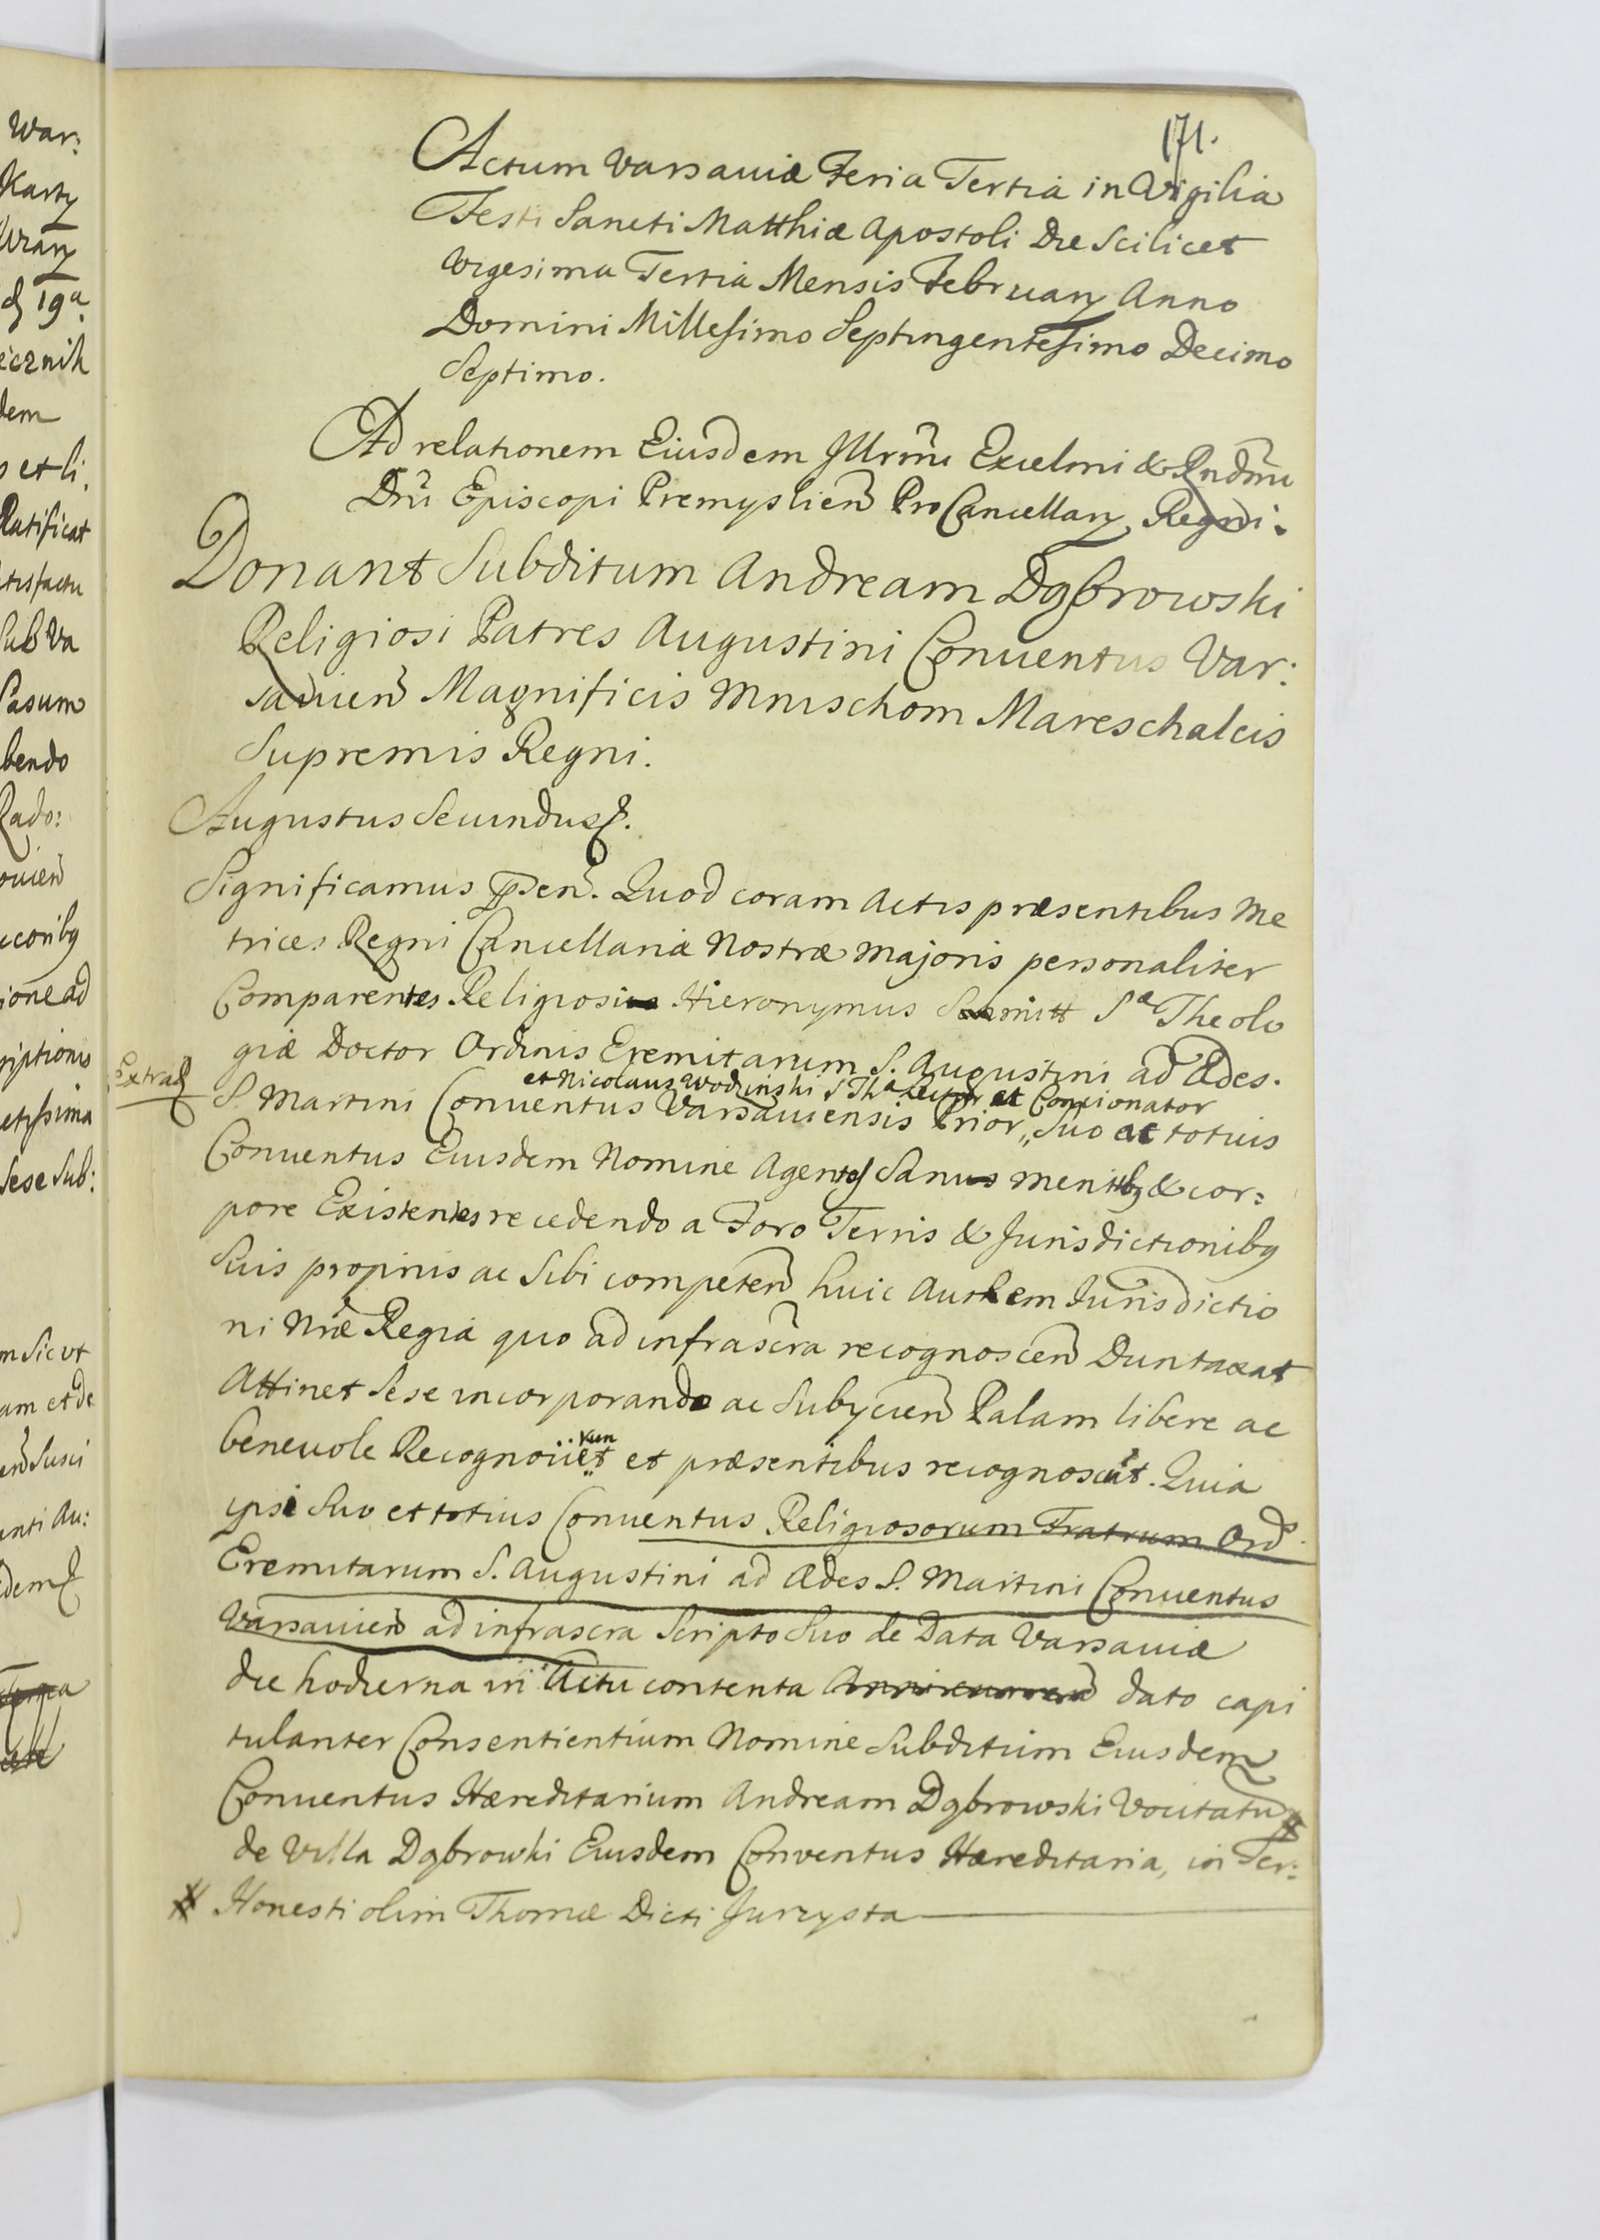 War:
Karty
19a
dem
et li
Ratificat
Sub Va
Pasum
bendo
Rado:
ione ad
Sese Sub:
m Sic ut
am et de
171.
Actum Varsaviæ Feria Tertia in Vigilia
Festi Sancti Matthiæ Apostoli Die Scilicet
Vigesima Tertia Mensis February Anno
Domini Millesimo Septingentesimo Decimo
Septimo.
Ad relationem Eiusdem Illrmi Excelmi & Rndmi
Dni Episcopi Premyslien ProCancellary Regni.
Donant Subditum Andream Dąbrowski
Religiosi Patres Augustini Conuentus Var:
sauien Magnificis Mnischom Mareschalcis
Supremis Regni.
Augustus Secundus.
Significamus psen. Quod coram Actis præsentibus Me
trices Regni Cancellariæ Nostræ Majoris personaliter
Comparentes Religiosi Hieronymus Schmitt Sæ Theolo
giæ Doctor Ordinis Eremitarum S. Augustini ad Ædes.
et Nicolaus Wodzinski S Thæ Lector et Concionator
Extrad
S. Martini Conuentus Varsauiensis Prior,, Suo ac totius
Conuentus Eiusdem Nomine Agentes Sanus mentibq & cor:
pore Existentes recedendo a Foro Terris & Jurisdictionibq
Suis proprius ac Sibi competen huic Authem Jurisdictio
ni Nræ Regiæ quo ad infrascra recognoscen Duntaxat
Attinet Sese incorporando ac Subycien Palam libere ac
run
beneuole Recognouet et præsentibus recognoscut. Quia
ipsi Suo et totius Conuentus Religiosorum Fratrum Ord.
Eremitarum S. Augustini ad Ædes S. Martini Conuentus
Varsauien ad infrascra Scripto Suo de Data Varsauiæ
die hodierna in Actu contenta dato capi
tulanter Consentientium Nomine Subditum Eiusdem
Conuentus Hæreditarium Andream Dąbrowski Vocitatum #
de Villa Dąbrowki Eiusdem Conventus Hæreditaria, in Ter:
# Honesti olim Thomæ Dicti Jurzysta